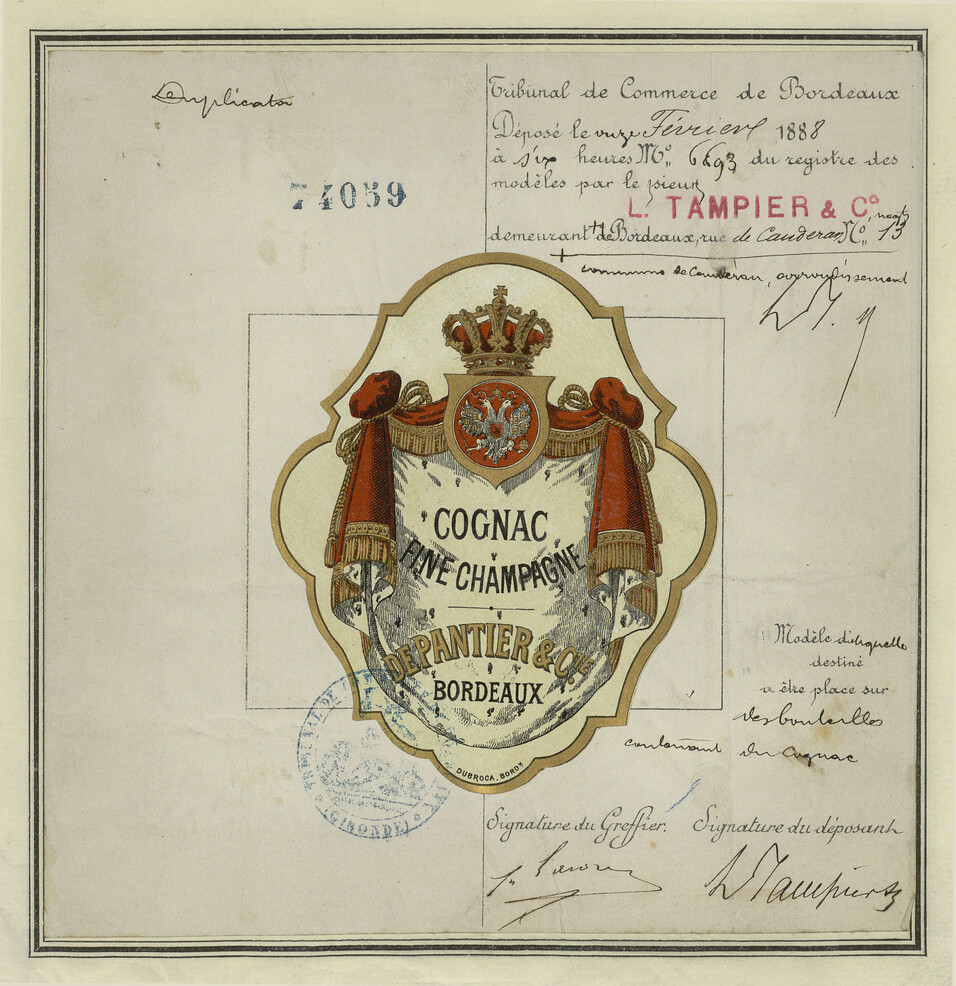 Duplicata
74059
Tribunal de Commerce de Bordeaux
Déposé le onze Février 1888
à six heures Nº 6693 du registre des
modèles par le sieur
L. TAMPIER & Cº
demeurant à Bordeaux, rue de Caudéran Nº 13
commune de Caudéran, arrondissement
LT.
COGNAC
FINE CHAMPAGNE
DEPANTIER & CIE
BORDEAUX
DUBROCA, BORDX
Modèle d'étiquette
destiné
a être place sur
des bouteilles
contenant du Cognac
TRIBUNAL DE
(GIRONDE)
Signature du Greffier. Signature du déposant
L Tampier